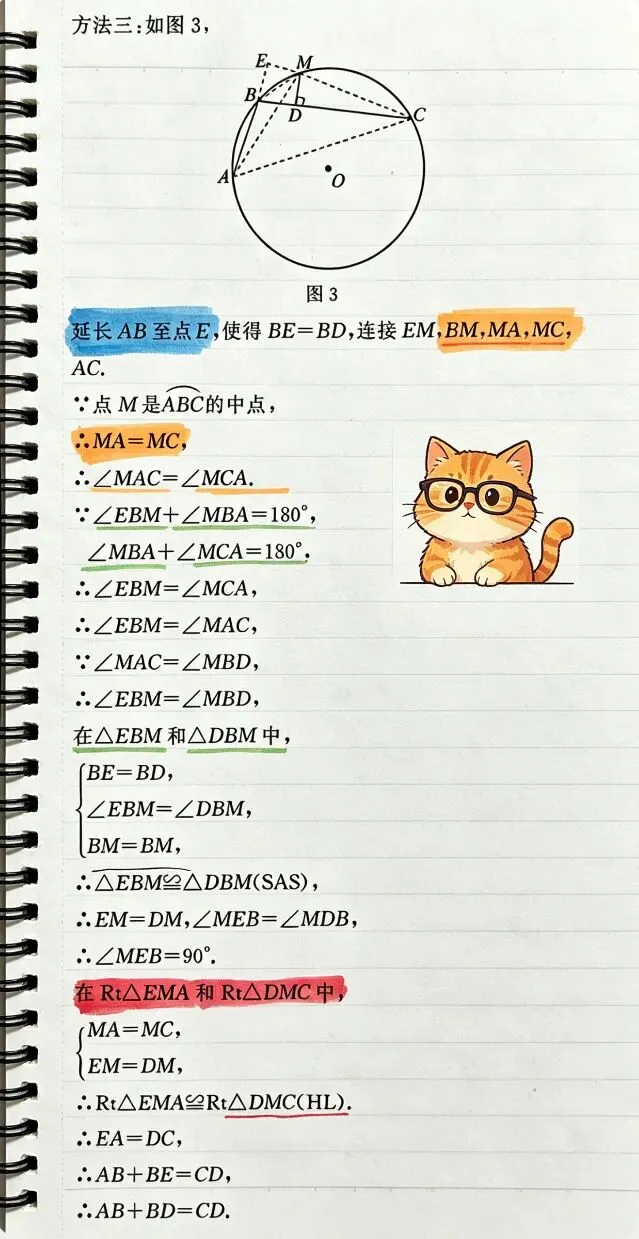 方法三:如图3,
E
M
B
D
C
A
O
图3
延长AB至点E,使得BE=BD,连接EM,BM,MA,MC,
AC.
∵点M是ABC的中点,
∴MA=MC,
∴∠MAC=∠MCA.
∵∠EBM+∠MBA=180°,
∠MBA+∠MCA=180°.
∴∠EBM=∠MCA,
∴∠EBM=∠MAC,
∵∠MAC=∠MBD,
∴∠EBM=∠MBD,
在△EBM和△DBM中,
BE=BD,
∠EBM=∠DBM,
BM=BM,
∴△EBM≌△DBM(SAS),
∴EM=DM,∠MEB=∠MDB,
∴∠MEB=90°.
在Rt△EMA和Rt△DMC中,
MA=MC,
EM=DM,
∴Rt△EMA≌Rt△DMC(HL).
∴EA=DC,
∴AB+BE=CD,
∴AB+BD=CD.